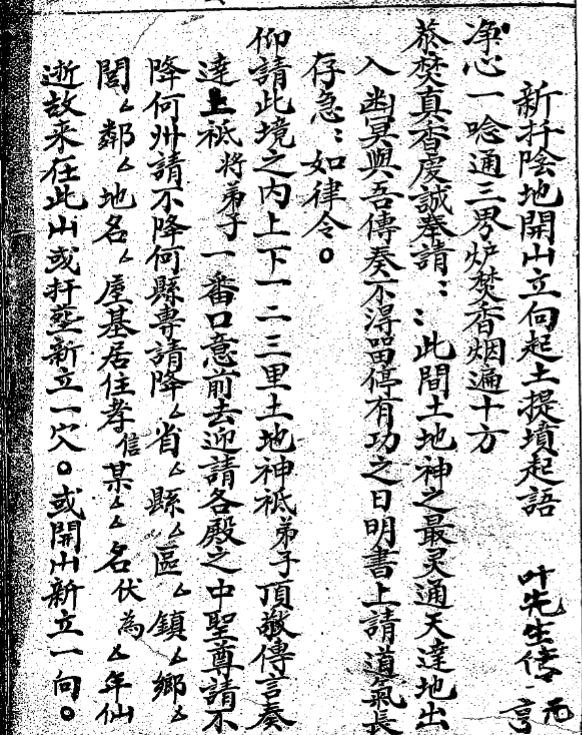 新扦陰地開山立向起土提墳起語 叶先生传 元亨
净心一唸通三界炉焚香烟遍十方
焚真香虔誠奉請：：此間土地神之最灵通天達地出
入幽冥與吾傳奏不淂畱停有功之日明書上請道氣長
存急：如律令。
仰請此境之内上下一二三里土地神祇弟子頂敬傳言奏
達上祗將弟子一番口意前去迎請各殿之中聖尊請不
降何州請不降何縣專請降厶省厶縣厶區厶鎮厶鄉厶
閭厶鄰厶地名厶屋基居住孝信某厶厶名伏為厶年仙
逝故來在此山或扦塟新立一穴。或開山新立一向。